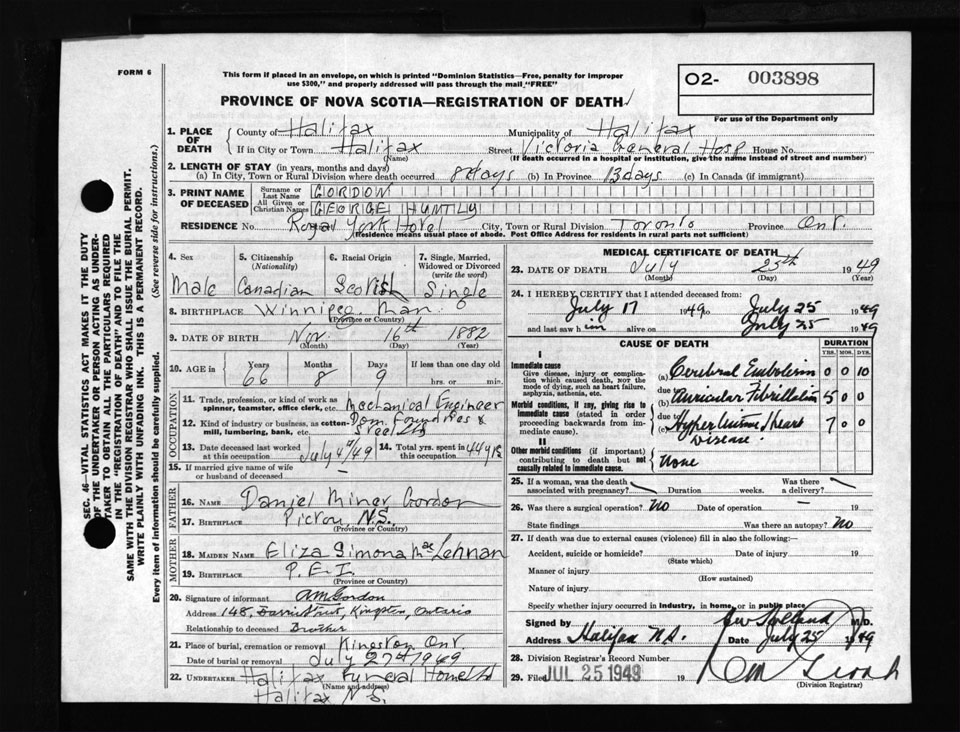 FORM 6
This form if placed in an envelope, on which is printed "Dominion Statistics—Free, penalty for improper
use $300," and properly addressed will pass through the mail "FREE"
O2- 003898
PROVINCE OF NOVA SCOTIA—REGISTRATION OF DEATH
For use of the Department only
1. PLACE OF DEATH { County of Halifax Municipality of Halifax
If in City or Town Halifax (Name) Street Victoria General Hosp House No.
(If death occurred in a hospital or institution, give the name instead of street and number)
2. LENGTH OF STAY (in years, months and days)
(a) In City, Town or Rural Division where death occurred 8 days (b) In Province 13 days (c) In Canada (if immigrant)
3. PRINT NAME OF DECEASED { Surname or Last Name GORDON
All Given or Christian Names GEORGE HUNTLY
RESIDENCE No. Royal York Hotel City, Town or Rural Division Toronto Province Ont.
(Residence means usual place of abode. Post Office Address for residents in rural parts not sufficient)
4. Sex 5. Citizenship (Nationality) 6. Racial Origin 7. Single, Married, Widowed or Divorced (write the word)
Male Canadian Scotish Single
8. BIRTHPLACE Winnipeg, Man.
(Province or Country)
9. DATE OF BIRTH Nov 16th 1882
(Month) (Day) (Year)
10. AGE { Years Months Days If less than one day old
66 8 9 hrs. or min.
OCCUPATION
11. Trade, profession, or kind of work as spinner, teamster, office clerk, etc. Mechanical Engineer
12. Kind of industry or business, as cotton-mill, lumbering, bank, etc. Dom. Foundries & Steel
13. Date deceased last worked at this occupation July 4/49 14. Total yrs. spent in this occupation 44 yrs
15. If married give name of wife or husband of deceased —
FATHER
16. NAME Daniel Miner Gordon
17. BIRTHPLACE Pictou, N.S.
(Province or Country)
MOTHER
18. MAIDEN NAME Eliza Simona MacLennan
19. BIRTHPLACE P.E.I.
(Province or Country)
20. Signature of informant AM Gordon
Address 148, Barrie Street, Kingston, Ontario
Relationship to deceased Brother
21. Place of burial, cremation or removal Kingston Ont.
Date of burial or removal July 27th 1949
22. UNDERTAKER Halifax Funeral Home Ltd
(Name and address)
Halifax N.S.
MEDICAL CERTIFICATE OF DEATH
23. DATE OF DEATH July 25th 1949
(Month) (Day) (Year)
24. I HEREBY CERTIFY that I attended deceased from:
July 17 1949 to July 25 1949
and last saw him alive on July 25 1949
CAUSE OF DEATH DURATION
YRS. MOS. DYS.
I
Immediate cause
Give disease, injury or complication which caused death, not the mode of dying, such as heart failure, asphyxia, asthenia, etc.
(a) Cerebral Embolism 0 0 10
due to
Morbid conditions, if any, giving rise to immediate cause (stated in order proceeding backwards from immediate cause).
(b) Auricular Fibrillation 5 0 0
due to
(c) Hypertensive Heart Disease. 7 0 0
II
Other morbid conditions (if important) contributing to death but not causally related to immediate cause. { None
25. If a woman, was the death associated with pregnancy? Duration weeks. Was there a delivery?
26. Was there a surgical operation? No Date of operation — 19
State findings Was there an autopsy? No
27. If death was due to external causes (violence) fill in also the following:—
Accident, suicide or homicide? Date of injury 19
(State which)
Manner of injury
(How sustained)
Nature of injury
Specify whether injury occurred in industry, in home, or in public place
Signed by M.D.
Address Halifax N.S. Date July 25 1949
28. Division Registrar's Record Number
29. Filed JUL 25 1949 19
(Division Registrar)
SEC. 46—VITAL STATISTICS ACT MAKES IT THE DUTY
OF THE UNDERTAKER OR PERSON ACTING AS UNDERTAKER TO OBTAIN ALL THE PARTICULARS REQUIRED
IN THE "REGISTRATION OF DEATH" AND TO FILE THE
SAME WITH THE DIVISION REGISTRAR WHO SHALL ISSUE THE BURIAL PERMIT.
WRITE PLAINLY WITH UNFADING INK. THIS IS A PERMANENT RECORD.
Every item of information should be carefully supplied. (See reverse side for instructions.)